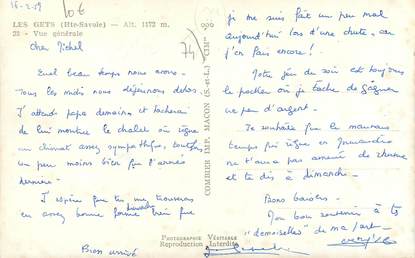 16-2-59
10€
LES GETS (Hte-Savoie) — Alt. 1172 m.
22 - Vue générale
74)
Cher Michel
Quel beau temps nous avons.
Tous les midis nous déjeunons dehors.
J'attends papa demain et tacherai
de lui montrer le chalet où règne
un climat assez sympathique, toutefois
un peu moins bien que l'année
dernière.
J'espère que tu me trouveras
en assez bonne forme bien que
je me suis fait un peu mal
aujourd'hui lors d'une chute, car
j'en fais encore !
Notre jeu du soir est toujours
le poker où je tâche de gagner
un peu d'argent.
Je souhaite que le mauvais
temps qui règne en Normandie
ne t'aura pas amené de rhume
et te dis à dimanche.
Bons baisers.
Mon bon souvenir à tes
"demoiselles" de ma part.
Bien amicalement
COMBIER IMP. MACON (S.-et-L.) "CIM"
PHOTOGRAPHIE VÉRITABLE
Reproduction Interdite